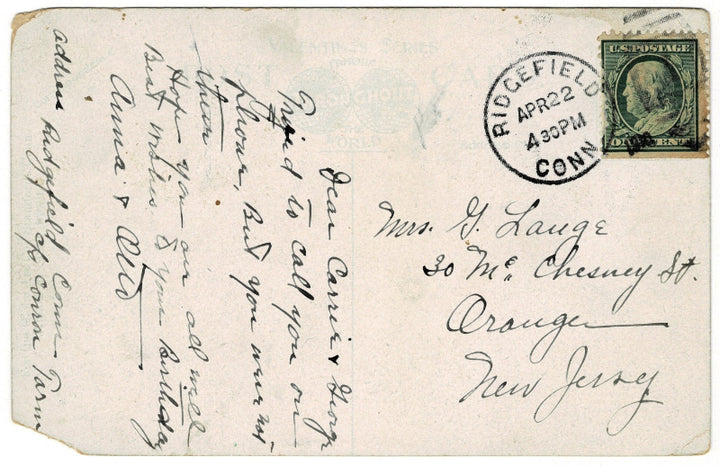 VALENTINE'S SERIES
U.S. POSTAGE
ONE CENT
RIDGEFIELD
APR 22
4 30 PM
CONN
Dear Carrie & George
Tried to call you on
phone, But you were not
there
Hope you are all well
Best wishes to your Birthday
Anna & Otto
address Ridgefield Conn
c/o Conron Farm
Mrs. G. Lange
30 Mc Chesney St.
Orange
New Jersey